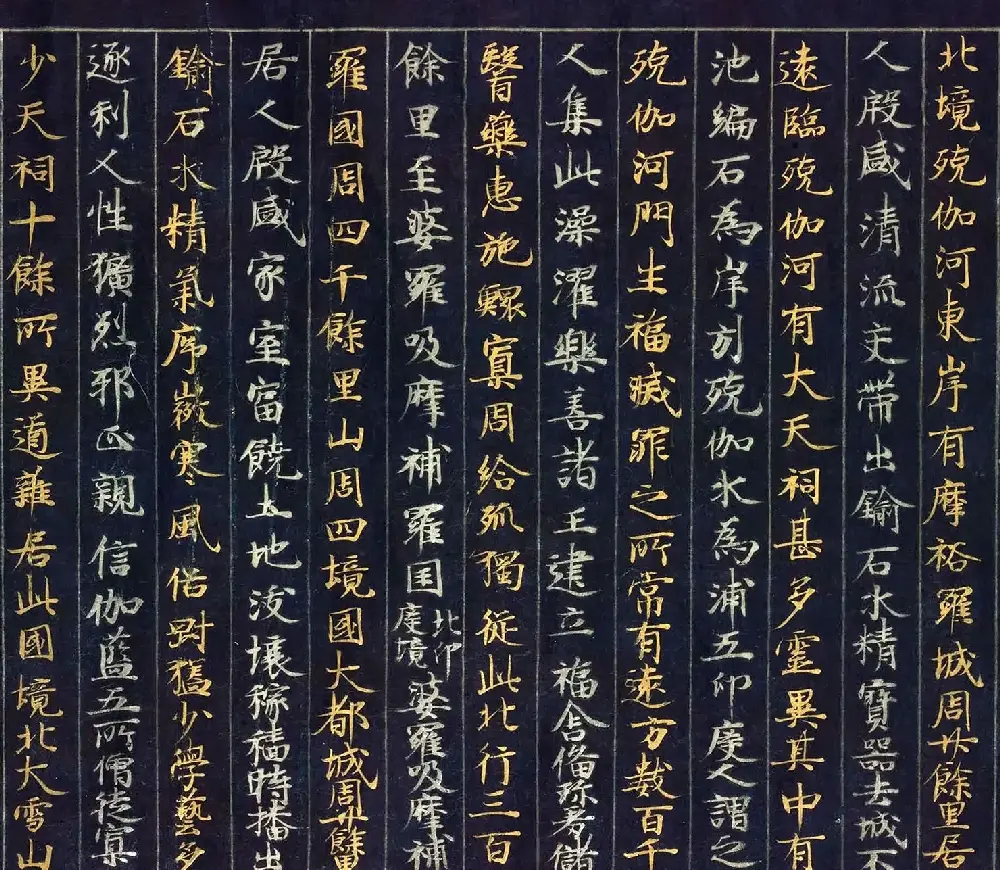 北境殑伽河東岸有摩裕羅城周廿餘里居
人殷盛清流交帶出鍮石水精寶器去城不
遠臨殑伽河有大天祠甚多靈異其中有
池編石為岸引殑伽水為浦五印度人謂之
殑伽河門生福滅罪之所常有遠方數百千
人集此澡濯樂善諸王建立福舍俻珎羞儲
醫藥惠施鰥寡周給孤獨從此北行三百
餘里至婆羅吸摩補羅国北印度境婆羅吸摩補
羅國周四千餘里山周四境國大都城周廿餘里
居人殷盛家室富饒土地沃壤稼穡時播出
鍮石水精氣序㣲寒風俗剛猛少學藝多
逐利人性獷烈邪正親信伽藍五所僧徒寡
少天祠十餘所異道雜居此國境北大雪山